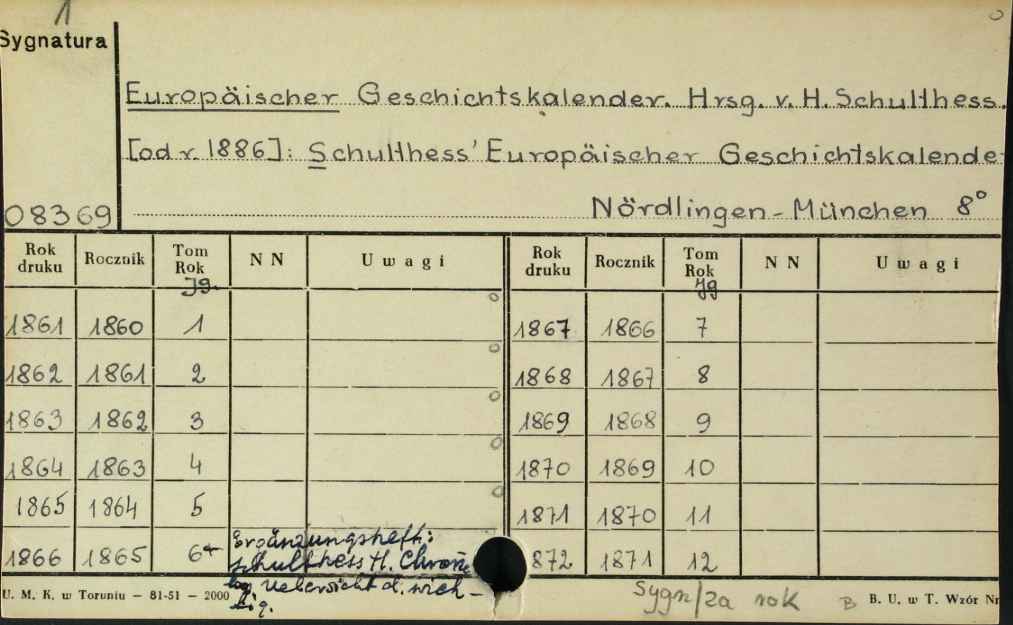 1
Sygnatura
Europäischer Geschichtskalender. Hrsg. v. H. Schulthess.
[od r. 1886]: Schulthess' Europäischer Geschichtskalende
08369 Nördlingen - München 8°
Rok druku Rocznik Tom Rok Jg. NN Uwagi Rok druku Rocznik Tom Rok Jg NN Uwagi
1861 1860 1 1867 1866 7
1862 1861 2 1868 1867 8
1863 1862 3 1869 1868 9
1864 1863 4 1870 1869 10
1865 1864 5 1871 1870 11
1866 1865 6+ Ergänzungsheft: 872 1871 12
Schulthess H. Chron
log. Uebersicht d. wich-
U. M. K. w Toruniu — 81-51 — 2000 Sygn/za rok B B. U. w T. Wzór Nr